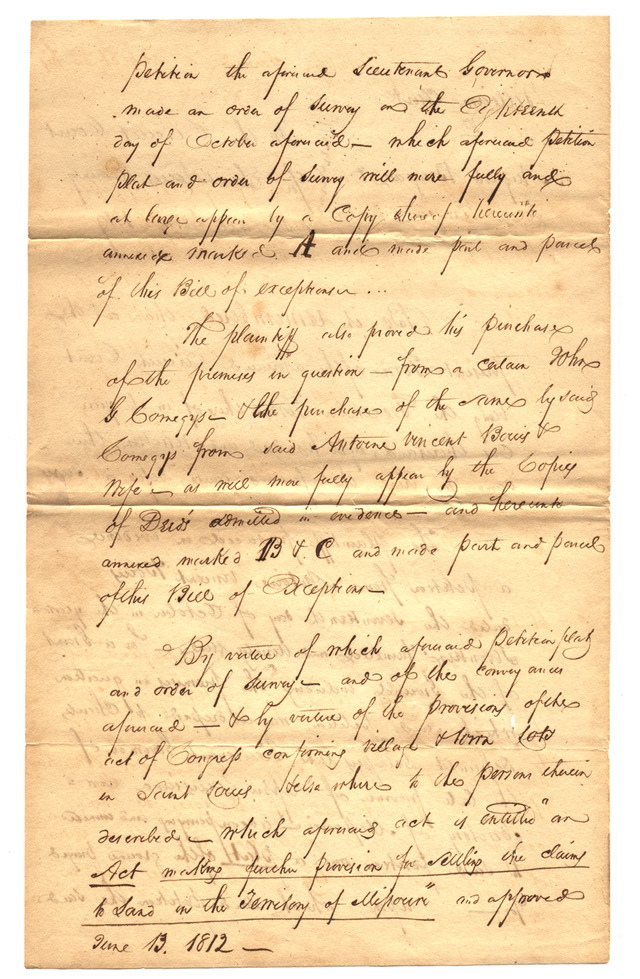 Petition the aforesaid Lieutenant Governor
made an order of Survey on the Eighteenth
day of October aforesaid — which aforesaid Petition
Plat and order of Survey will more fully and
at large appear by a Copy thereof hereunto
annexed marked A and made part and parcel
of this Bill of exceptions ...
The plaintiff also proved his purchase
of the premises in question — from a certain John
G Comegys — & the purchase of the same by said
Comegys from said Antoine Vincent Bouis &
Wife — as will more fully appear by the Copies
of Deeds admitted in evidence — and hereunto
annexed marked B & C and made part and parcel
of this Bill of Exceptions —
By virtue of which aforesaid Petition plat
and order of Survey — and of the conveyances
aforesaid — & by virtue of the provisions of the
act of Congress confirming village & town Lots
in Saint Louis & elsewhere to the persons therein
described — which aforesaid act is entitled "an
Act making further provision for settling the claims
to Land in the Territory of Missouri" and approved
June 13. 1812 —